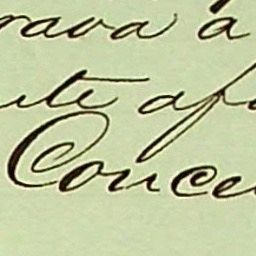 rava a
ute af
Conce